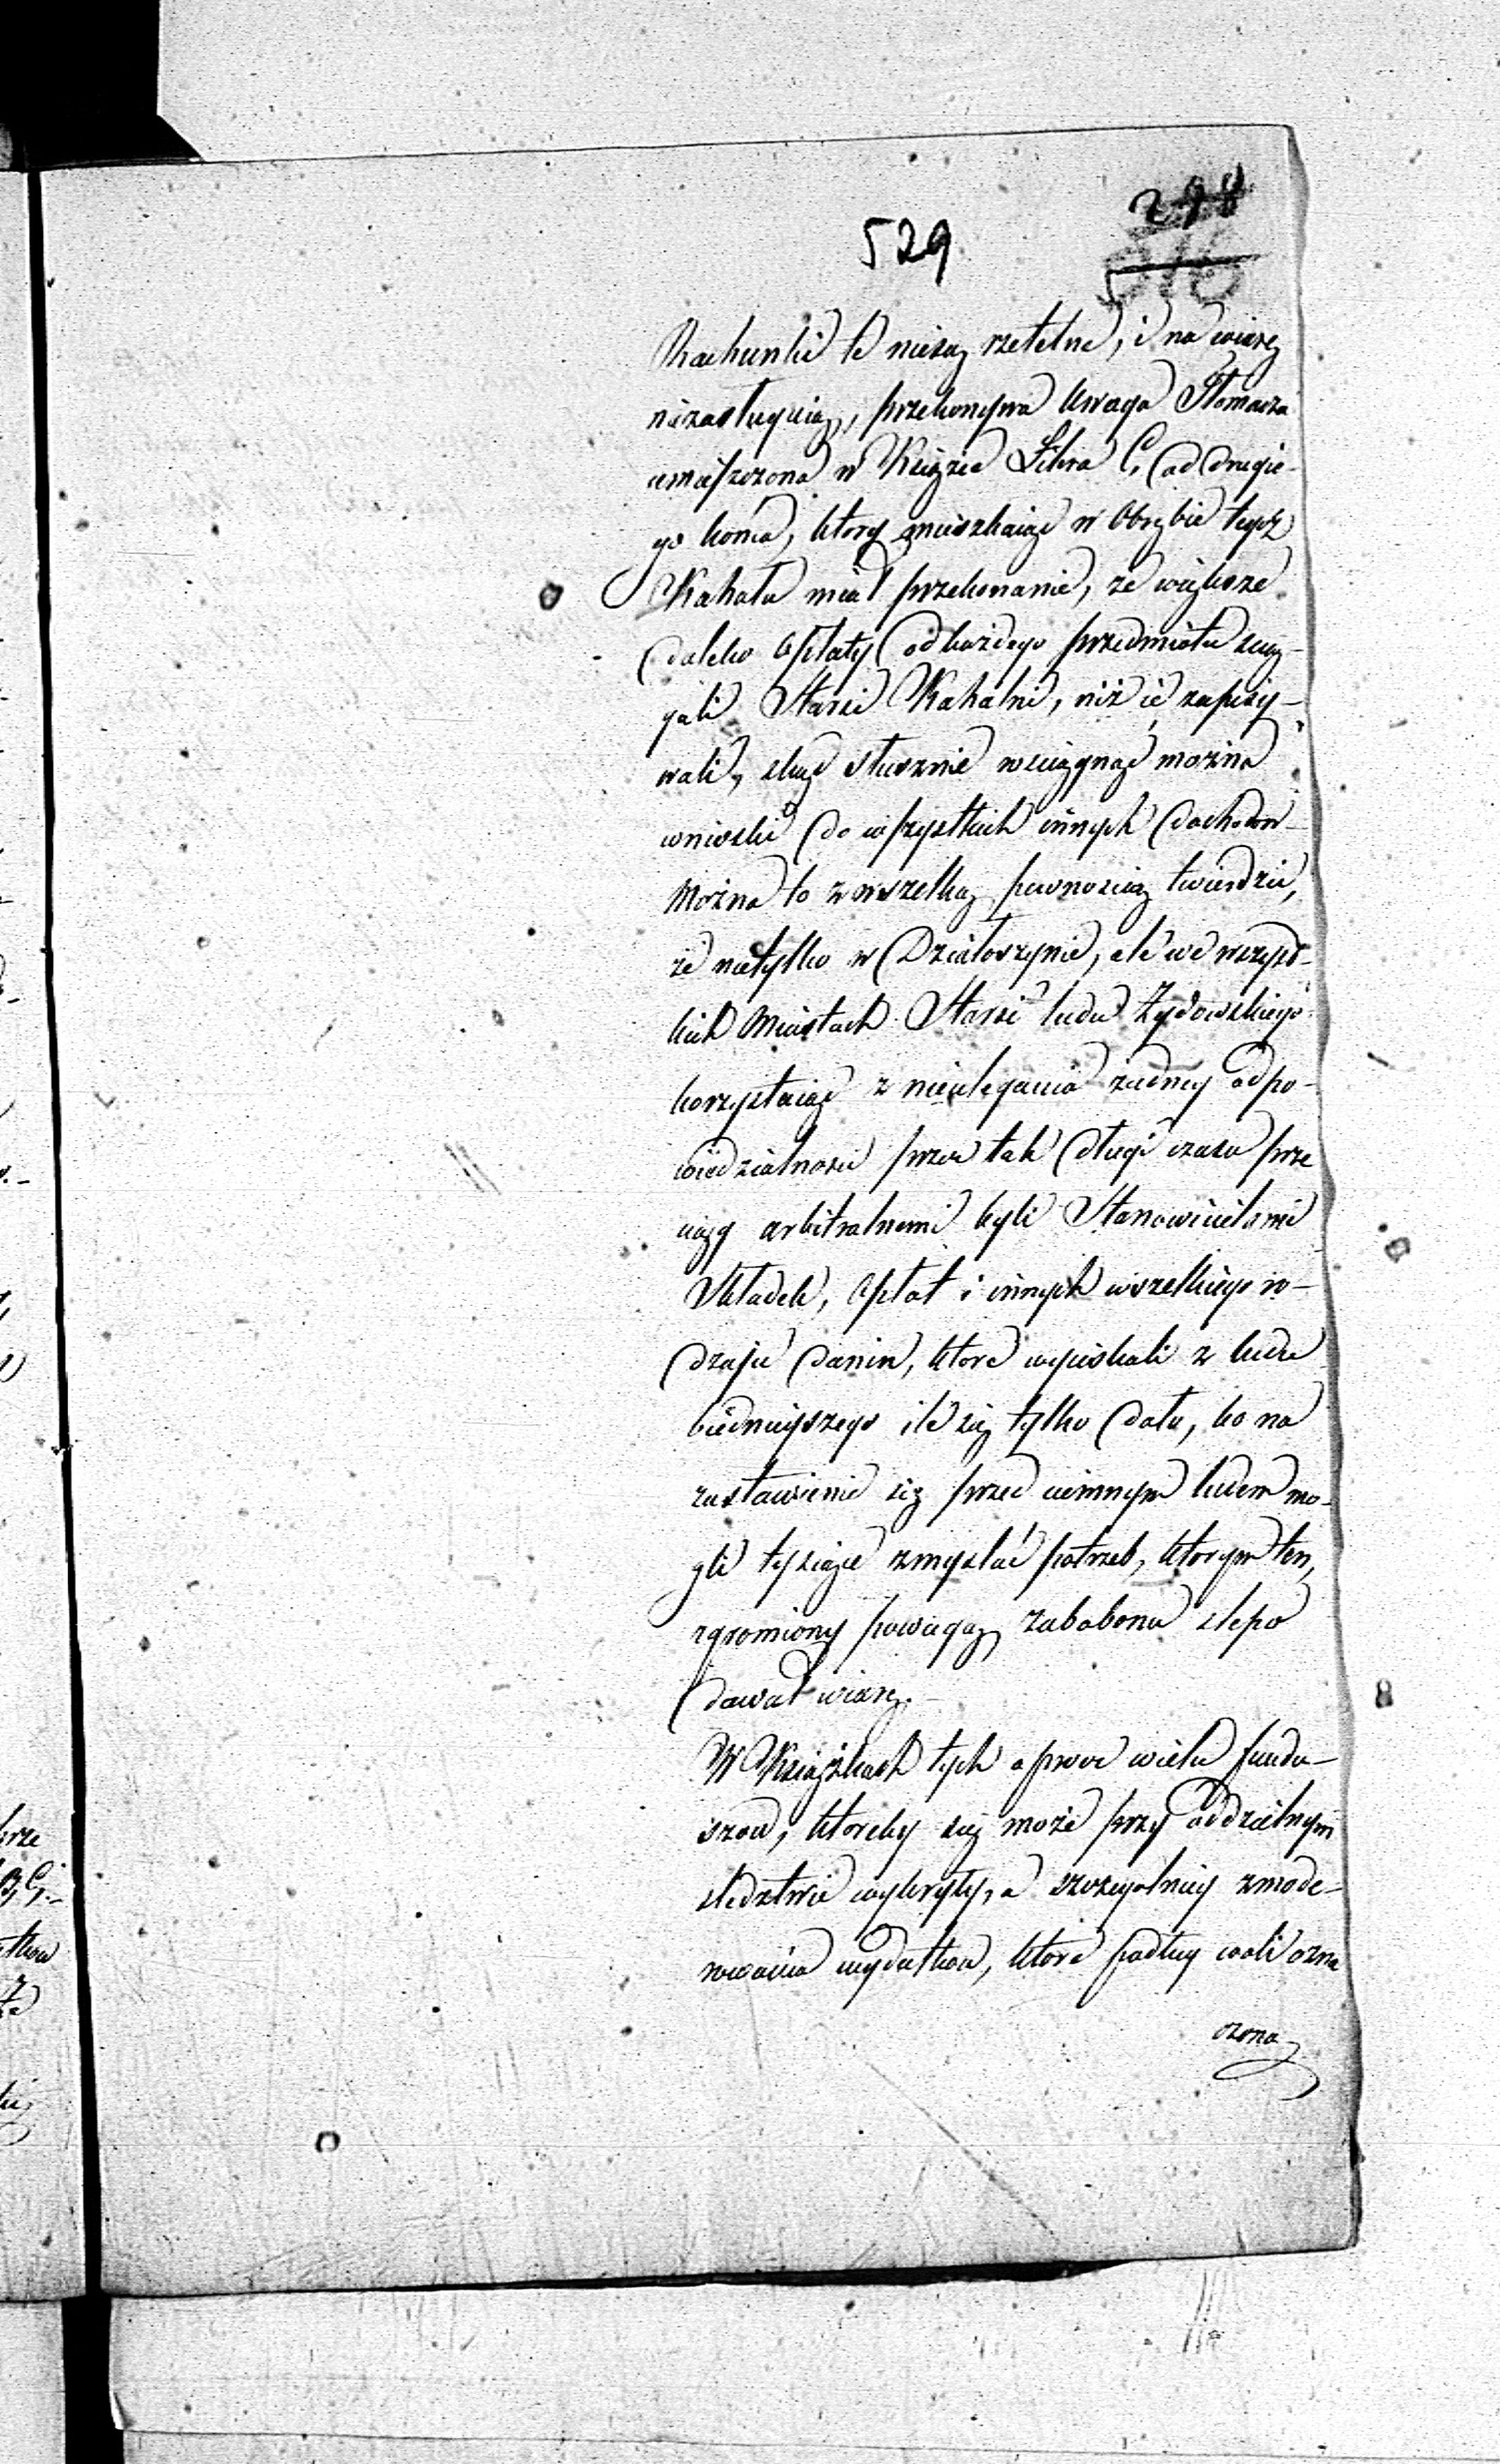 298
529
Rachunki te niesą rzetelne, i na wiarę
niezasługuią, przekonywa Uwaga Tłomacza
umieszczona w Książce Litera C, od drugie-
go konca, ktory mieszkaiąc w Obrębie tegoż
Kahału miał przekonanie, że większe
daleko Opłaty od każdego przedmiotu scią-
gali Starsi Kahalni, niż ie zapisy-
wali, skąd słusznie wciągnąć można
wnioski do wszystkich innych dochodow
Można to z wszelką pewnością twierdzić,
że nietylko w Działoszynie, ale we wszyst-
kich Miastach Starsi ludu Żydowskiego
korzystaiąc z nieulegania żadney odpo-
wiedzialności przez tak długi czasu prze
ciąg arbitralnemi byli Stanowicielami
Składek, Opłat i innych wszelkiego ro-
dzaju danin, ktore wyciskali z ludu
biednieyszego ile się tylko dało, bo na
zastawienie się przed ciemnym ludem mo-
gli tysiące zmyślać potrzeb, ktorym ten,
zgromiony powagą zabobonu slepo
dawał wiarę.
W Książkach tych oprocz wielu fundu-
szow, ktoreby się może przy oddzielnym
sledztwie wykryły, a szczegolniey zmode-
rowania wydatkow, ktore podług woli ozna
czona